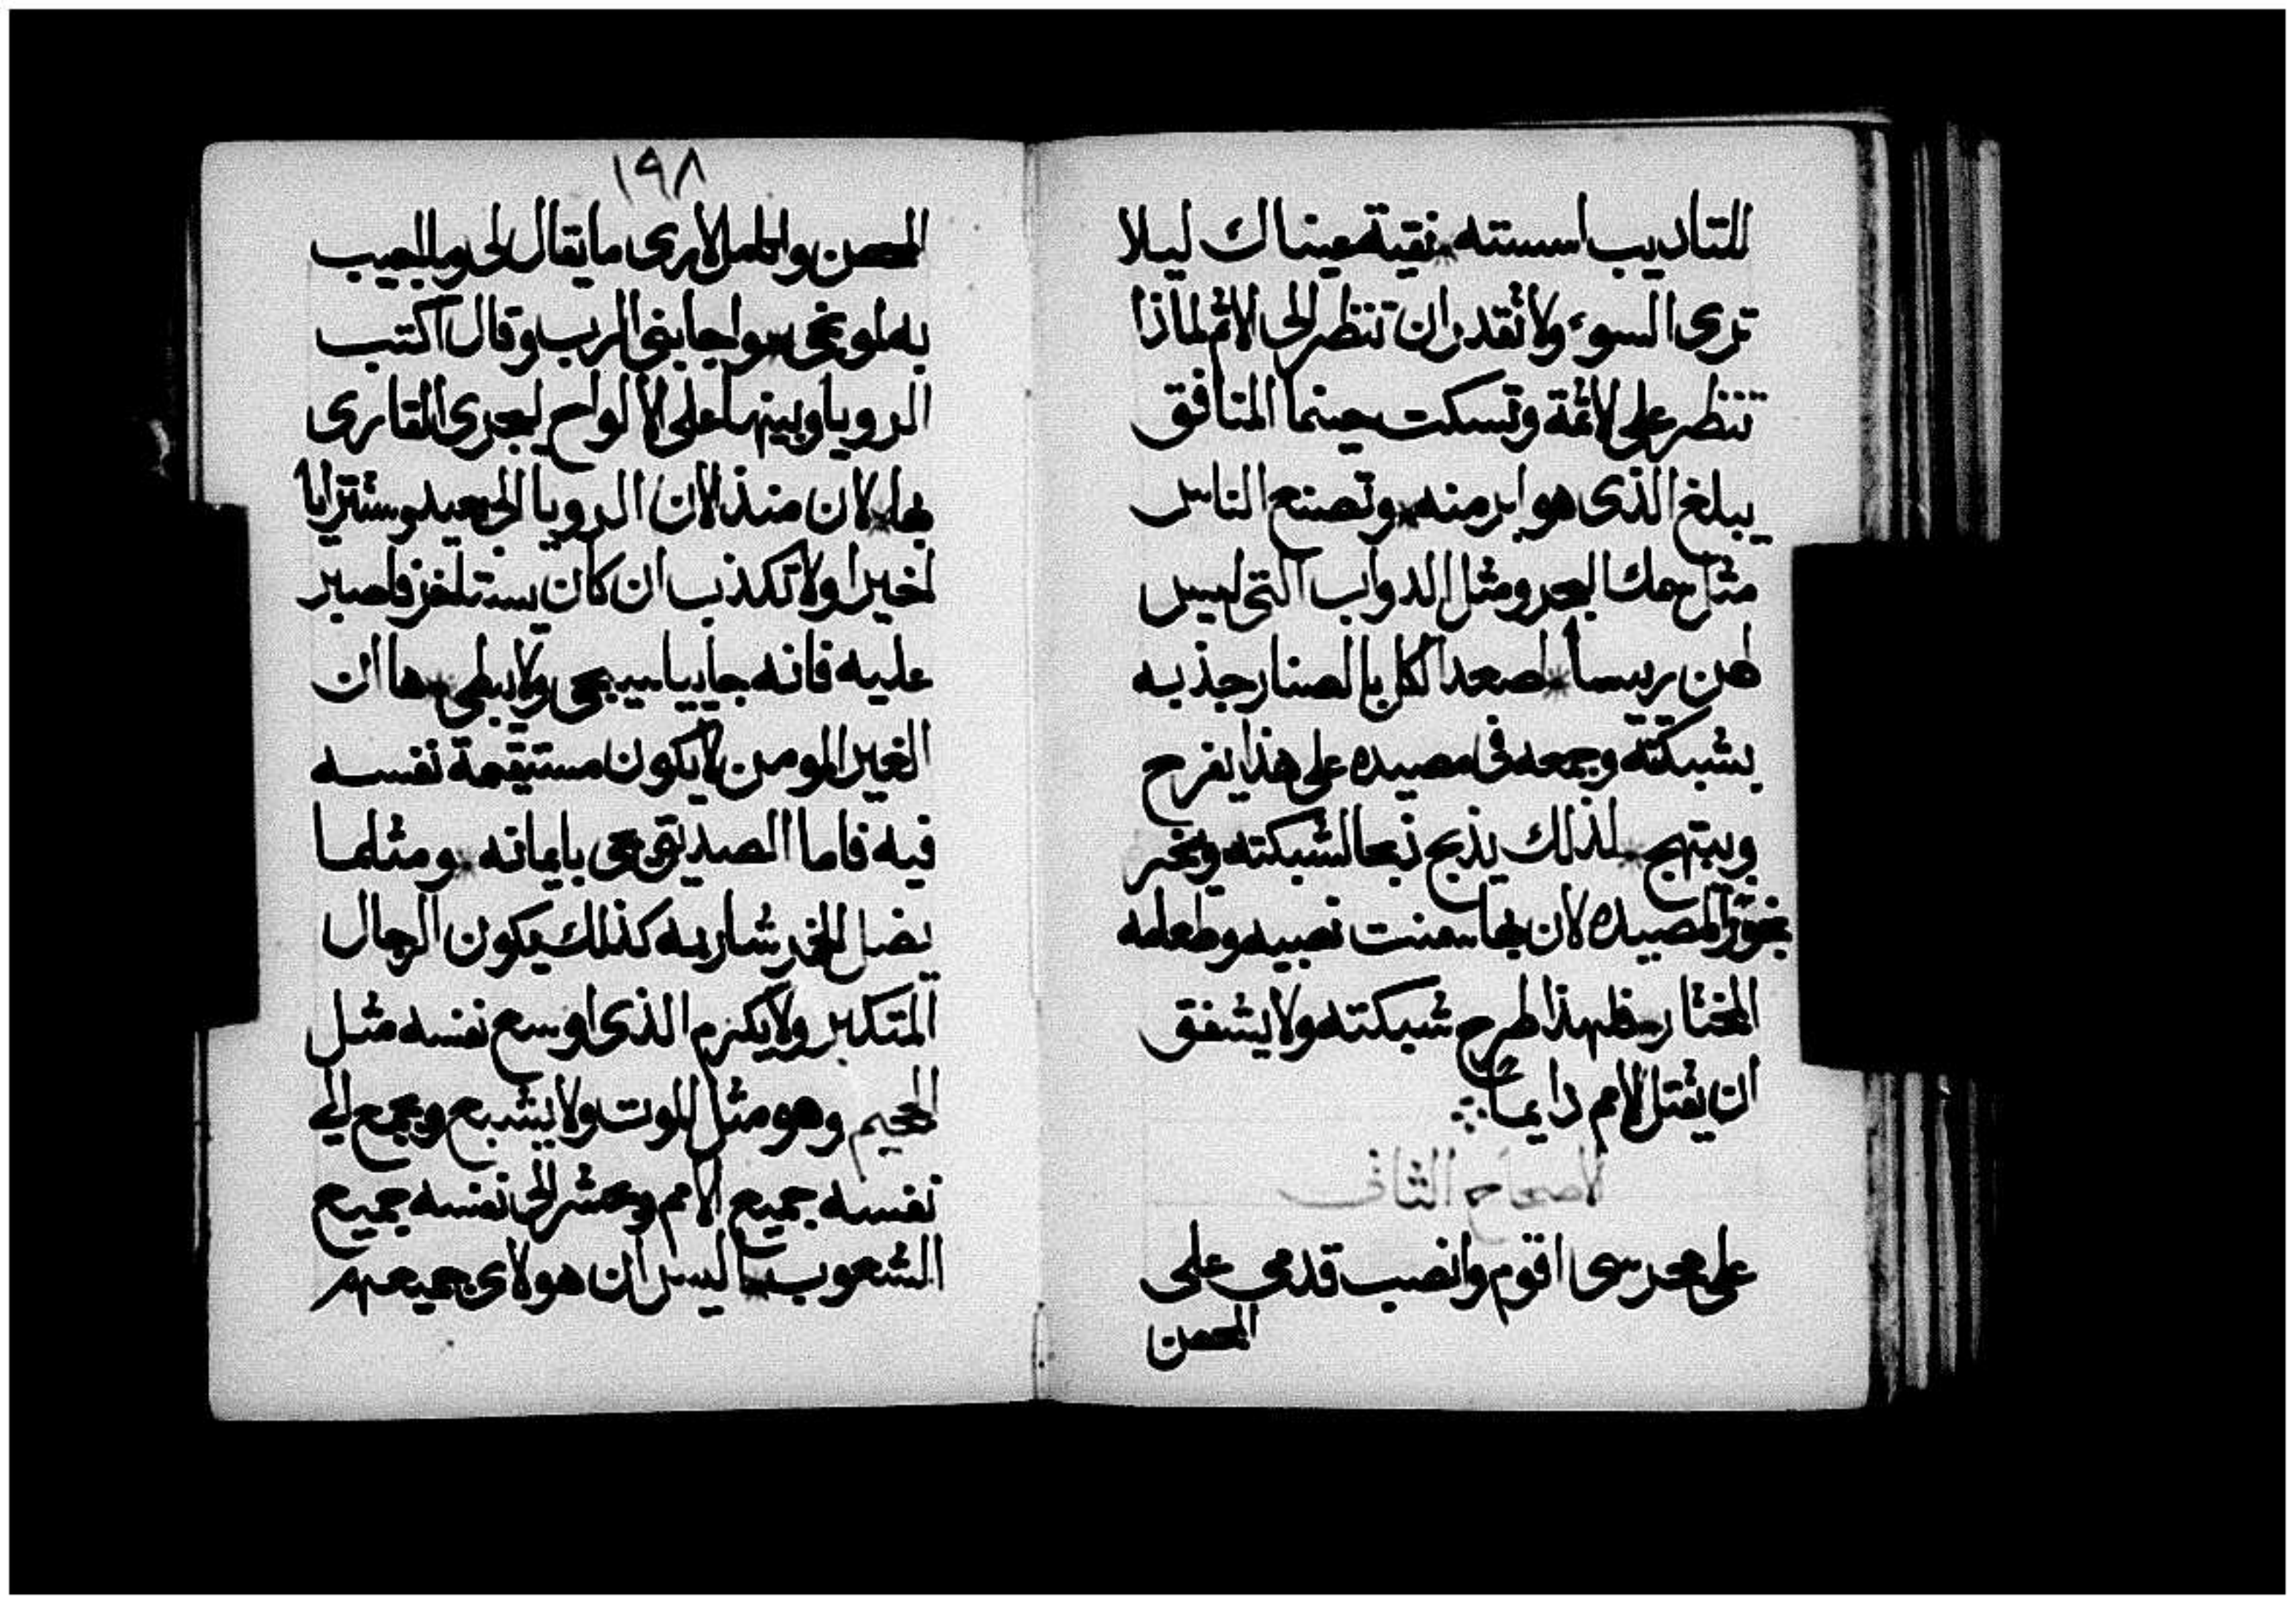 للتاديب اسسته نقية عيناك ليلا
ترى السوء ولا تقدر ان تنظر الى الاثم لماذا
تنظر على الاثمة وتسكت حينما المنافق
يبلغ الذى هو ابر منه وتصنع الناس
مثل سمك البحر ومثل الدواب التى ليس
لهن ريسا اصعد الكل بالصنار جذبه
بشبكته وجمعه فى مصيده على هذا يفرح
ويبتهج لذلك يذبح ذبحا لشبكته ويبخر
بخورا لمصيده لان بها سمنت نصيبه وطعامه
المختار فلهذا طرح شبكته ولا يشفق
ان يقتل الامم دايما
الاصحاح الثانى
على محرسى اقوم وانصب قدمى على
الحصن
١٩٨
الحصن واتامل لارى ما يقال لى وما اجيب
به لموبخى واجابنى الرب وقال اكتب
الرويا وبينها على الالواح ليجرى القارى
بها لان منذ الان الرويا الى بعيد وستترايا
اخيرا ولا تكذب ان كان يستاخر فاصبر
عليه فانه جاييا سيجى ولا يبطى ها ان
الغير المومن لا يكون مستيقمة نفسه
فيه فاما الصديق يحى بايمانه ومثلما
يضل الخمر شاربه كذلك يكون الرجال
المتكبر ولا يكرم الذى اوسع نفسه مثل
الجحيم وهو مثل الموت ولا يشبع ويجمع الى
نفسه جميع الامم ويحشر الى نفسه جميع
الشعوب اليس ان هولاى جميعهم